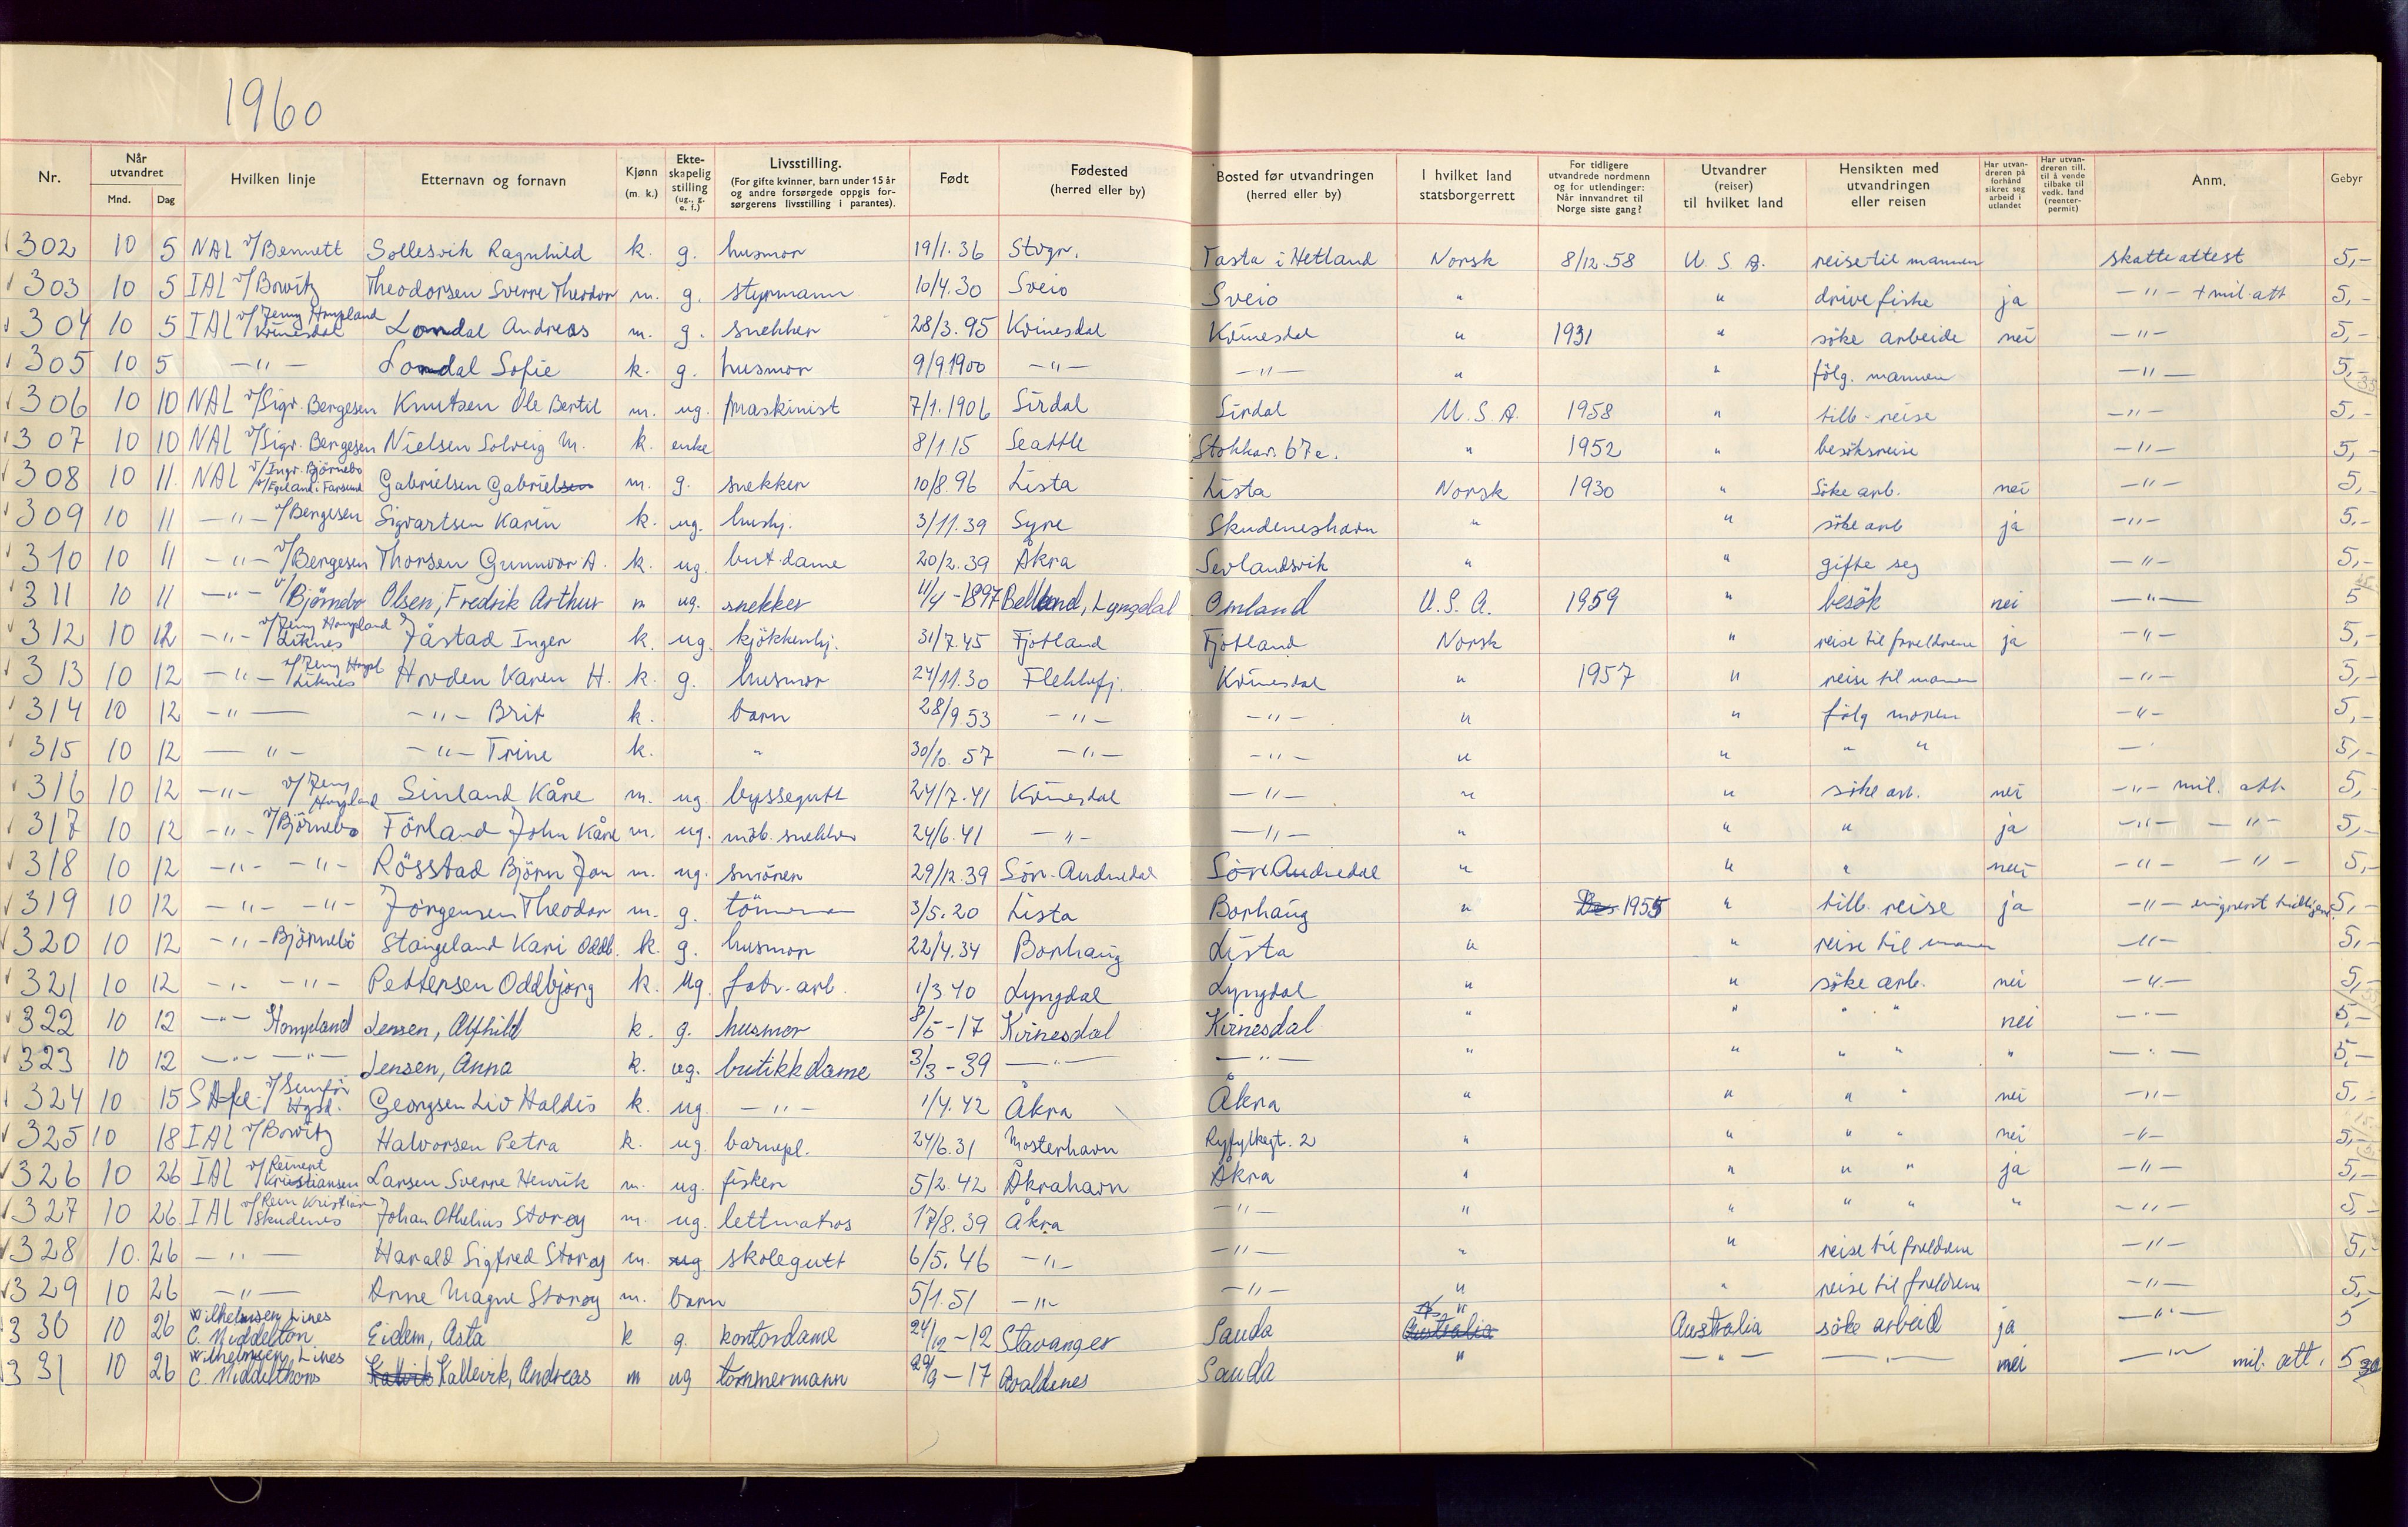 1960
Nr. | Når utvandret Mnd. Dag | Hvilken linje | Etternavn og fornavn | Kjønn (m. k.) | Ekte-skapelig stilling (ug., g. e. f.) | Livsstilling. (For gifte kvinner, barn under 15 år og andre forsørgede oppgis for-sørgerens livsstilling i parantes). | Født | Fødested (herred eller by) | Bosted før utvandringen (herred eller by) | I hvilket land statsborgerrett | For tidligere utvandrede nordmenn og for utlendinger: Når innvandret til Norge siste gang? | Utvandrer (reiser) til hvilket land | Hensikten med utvandringen eller reisen | Har utvan-dreren på forhånd sikret seg arbeid i utlandet | Har utvan-dreren till. til å vende tilbake til vedk. land (reenter-permit) | Anm. | Gebyr
302 10 5 NAL v/Bennett Sollesvik Ragnhild k. g. husmor 19/1.36 Stvgr. Tasta i Hetland Norsk 8/12.58 U. S. A. reise til mannen skatteattest 5,-
303 10 5 IAL v/Bowitz Theodorsen Sverre Theodor m. g. styrmann 10/4.30 Sveio Sveio " " drive fiske ja -"- + mil. att 5,-
304 10 5 IAL v/Jenny Hompland Kvinesdal Londal Andreas m. g. snekker 28/3.95 Kvinesdal Kvinesdal " 1931 " söke arbeide nei -"- 5,-
305 10 5 -"- Londal Sofie k. g. husmor 9/9.1900 -"- -"- " " fölg. mannen -"- 5,-
306 10 10 NAL v/Sigv. Bergesen Knutsen Ole Bertil m. ug. maskinist 7/1.1906 Sirdal Sirdal U.S.A. 1958 " tilb-reise -"- 5,-
307 10 10 NAL v/Sigv. Bergesen Nielsen Solveig M. k. enke 8/1 15 Seattle Stokkav. 67e. " 1952 " besöksreise -"- 5,-
308 10 11. NAL v/Ingv. Björnebo v/Egeland i Farsund Gabrielsen Gabrielsen m. g. snekker 10/8.96 Lista Lista Norsk 1930 " Söke arb. nei -"- 5,-
309 10 11 -"- v/Bergesen Sigvartsen Karin k. ug. hushj. 3/11.39 Syre Skudeneshavn " " söke arb ja -"- 5.-
310 10 11 -"- v/Bergesen Thorsen Gunnvor A. k. ug. but.dame 20/2.39 Åkra Sevlandsvik " " gifte seg -"- 5,-
311 10 11 -"- v/Björnebo Olsen, Fredrik Arthur m ug. snekker 11/4-1897 Lyngdal Omland U.S.A. 1959 " besök nei -"- 5
312 10 12 -"- v/Jenny Hompland Liknes Jåstad Inger k. ug. kjökkenhj. 31/7.45 Fjotland Fjotland Norsk " reise til foreldrene ja -"- 5,-
313 10 12 -"- v/Jenny Hompl Liknes Hovden Karen H. k. g. husmor 24/11.30 Flekkefj. Kvinesdal " 1957 " reise til mannen -"- 5,-
314 10 12 -"- -"- Brit k. barn 28/9.53 -"- -"- " " fölg moren -"- 5,-
315 10 12 -"- -"- Trine k. " 30/10.57 -"- -"- " " " " - 5,-
316 10 12 -"- v/Jenny Hompland Sinland Kåre m. ug. byssegutt 24/7.41 Kvinesdal -"- " " söke arb. nei -"- mil. att. 5,-
317 10 12 -"- v/Björnebo Förland John Kåre m. ug. möb. snekker 24/6.41 -"- -"- " " " ja -"- -"- 5,-
318 10 12 -"- -"- Rösstad Björn Jan m. ug. smörer 29/12.39 Sör-Audnedal Sör-Audnedal " " " nei -"- -"- 5,-
319 10 12 -"- -"- Jörgensen Theodor m. g. tömmerman 3/5.20 Lista Borhaug " Des. 1955 " tilb. reise ja -"- emigrert tidligere. 5,-
320 10 12 -"- Björnebö Stangeland Kari Oddb. k. g. husmor 22/4.34 Borhaug Lista " " reise til mannen -"- 5,-
321 10 12 -"- -"- Pettersen Oddbjörg k. ug. fabr.-arb. 1/3 40 Lyngdal Lyngdal " " söke arb. nei -"- 5,-
322 10 12 -"- Hompland Jensen, Alfhild k. g. husmor 8/5-17 Kvinesdal Kvinesdal " " " " nei -"- 5,-
323 10 12 -"- -"- Jensen, Anna k. ug. butikkdame 3/3-39 -"- -"- " " " " " -"- 5,-
324 10 15 v/ Georgsen Liv Haldis k. ug -"- 1/4.42 Åkra Åkra " " " " nei -"- 5,-
325 10 18 IAL v/Bowitz Halvorsen Petra k. ug. barnepl. 24/6.31 Mosterhavn Ryfylkegt. 2 " " " " nei -"- 5,-
326 10 26 IAL v/Reinert Kristiansen Larsen Sverre Henrik m. ug. fisker 5/2.42 Åkrahavn Åkra " " " " ja -"- 5,-
327 10 26. IAL v/Rein Kristian Skudenes Johan Othelius Storøy m. ug. lettmatros 17/8.39 Åkra -"- " " " " " -"- 5,-
328 10. 26 -"- Harald Sigfred Storøy m. ug skolegutt 6/5.46 -"- -"- " " reise til foreldrene -"- 5,-
329 10 26 -"- Arne Magne Storøy m. barn 5/1.51 -"- -"- " " reise til foreldrene -"- 5,-
330 10 26 Wilhelmsen Lines C. Middelton Eidem, Asta k g. kontordame 24/12-12 Stavanger Sauda Australia " Australia söke arbeid ja -"- 5
331 10 26 Wilhelmsen Lines C. Middelthons Kalvik Kallevik, Andreas m ug tömmermann 29/9-17 Avaldsnes Sauda " -"- -"- nei -"- mil. att. 5 30